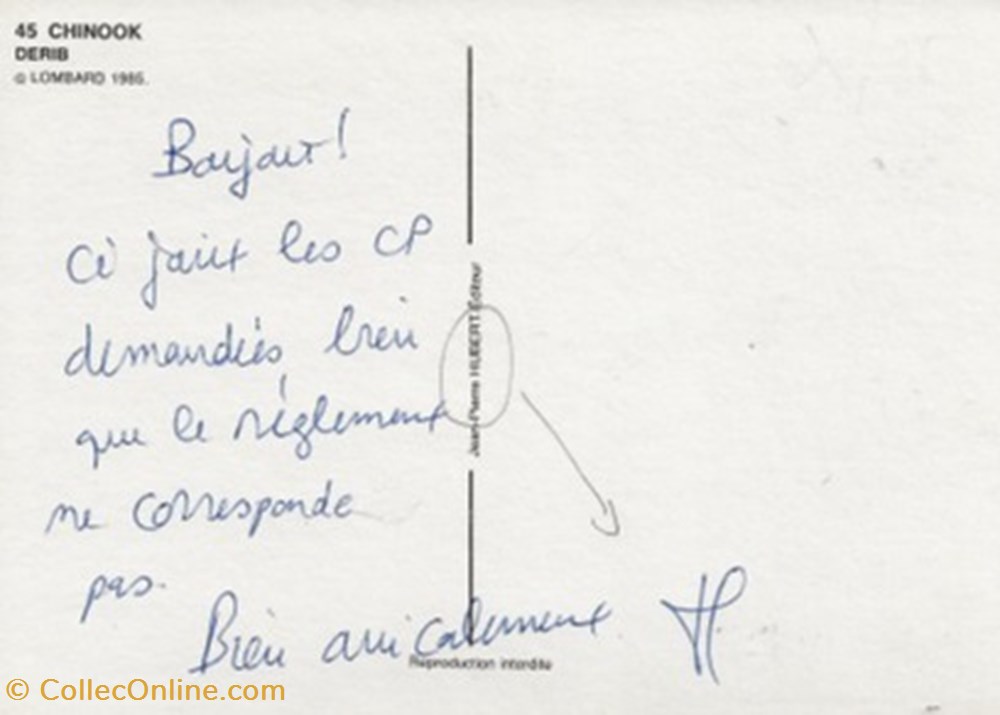 45 CHINOOK
DERIB
© LOMBARD 1985.
Bonjour!
Ci joint les CP
demandées, bien
que le réglement
ne corresponde
pas.
Bien amicalement
Jean-Pierre HUBERT Editeur
Reproduction interdite
© CollecOnline.com